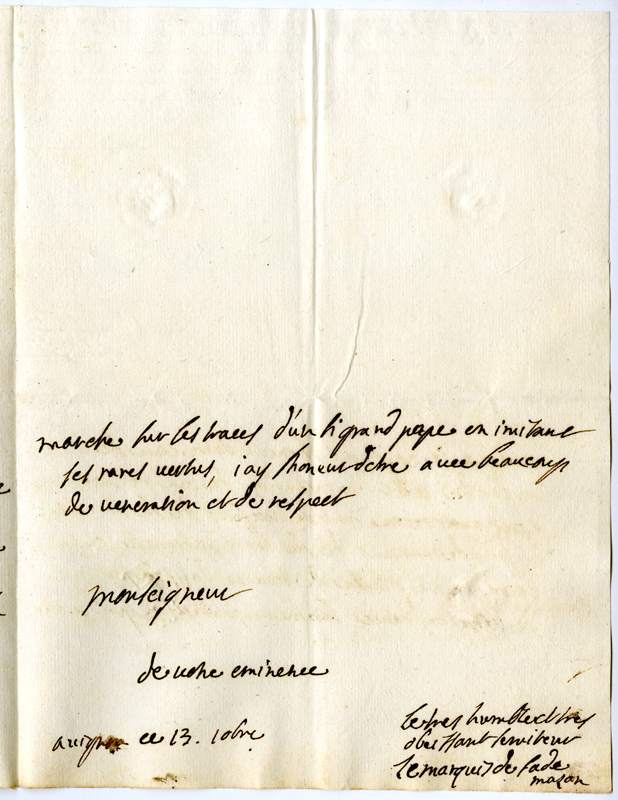 marche sur les traces d'un si grand pape en imitant
ses rares vertus, iay lhoneur detre avec beaucoup
de veneration et de respect
monseigneur
de votre eminence
avignon ce 13. 10bre
le tres humble et tres
obeissant serviteur
le marquis de sade
mazan